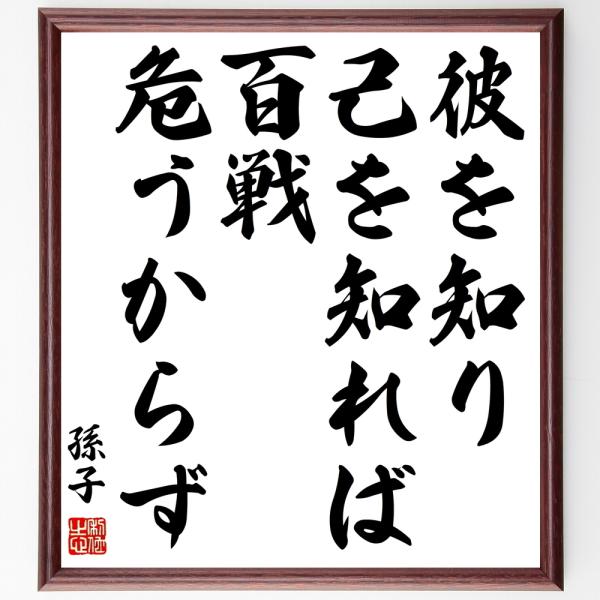 彼を知り
己を知れば
百戦
危うからず
孫子